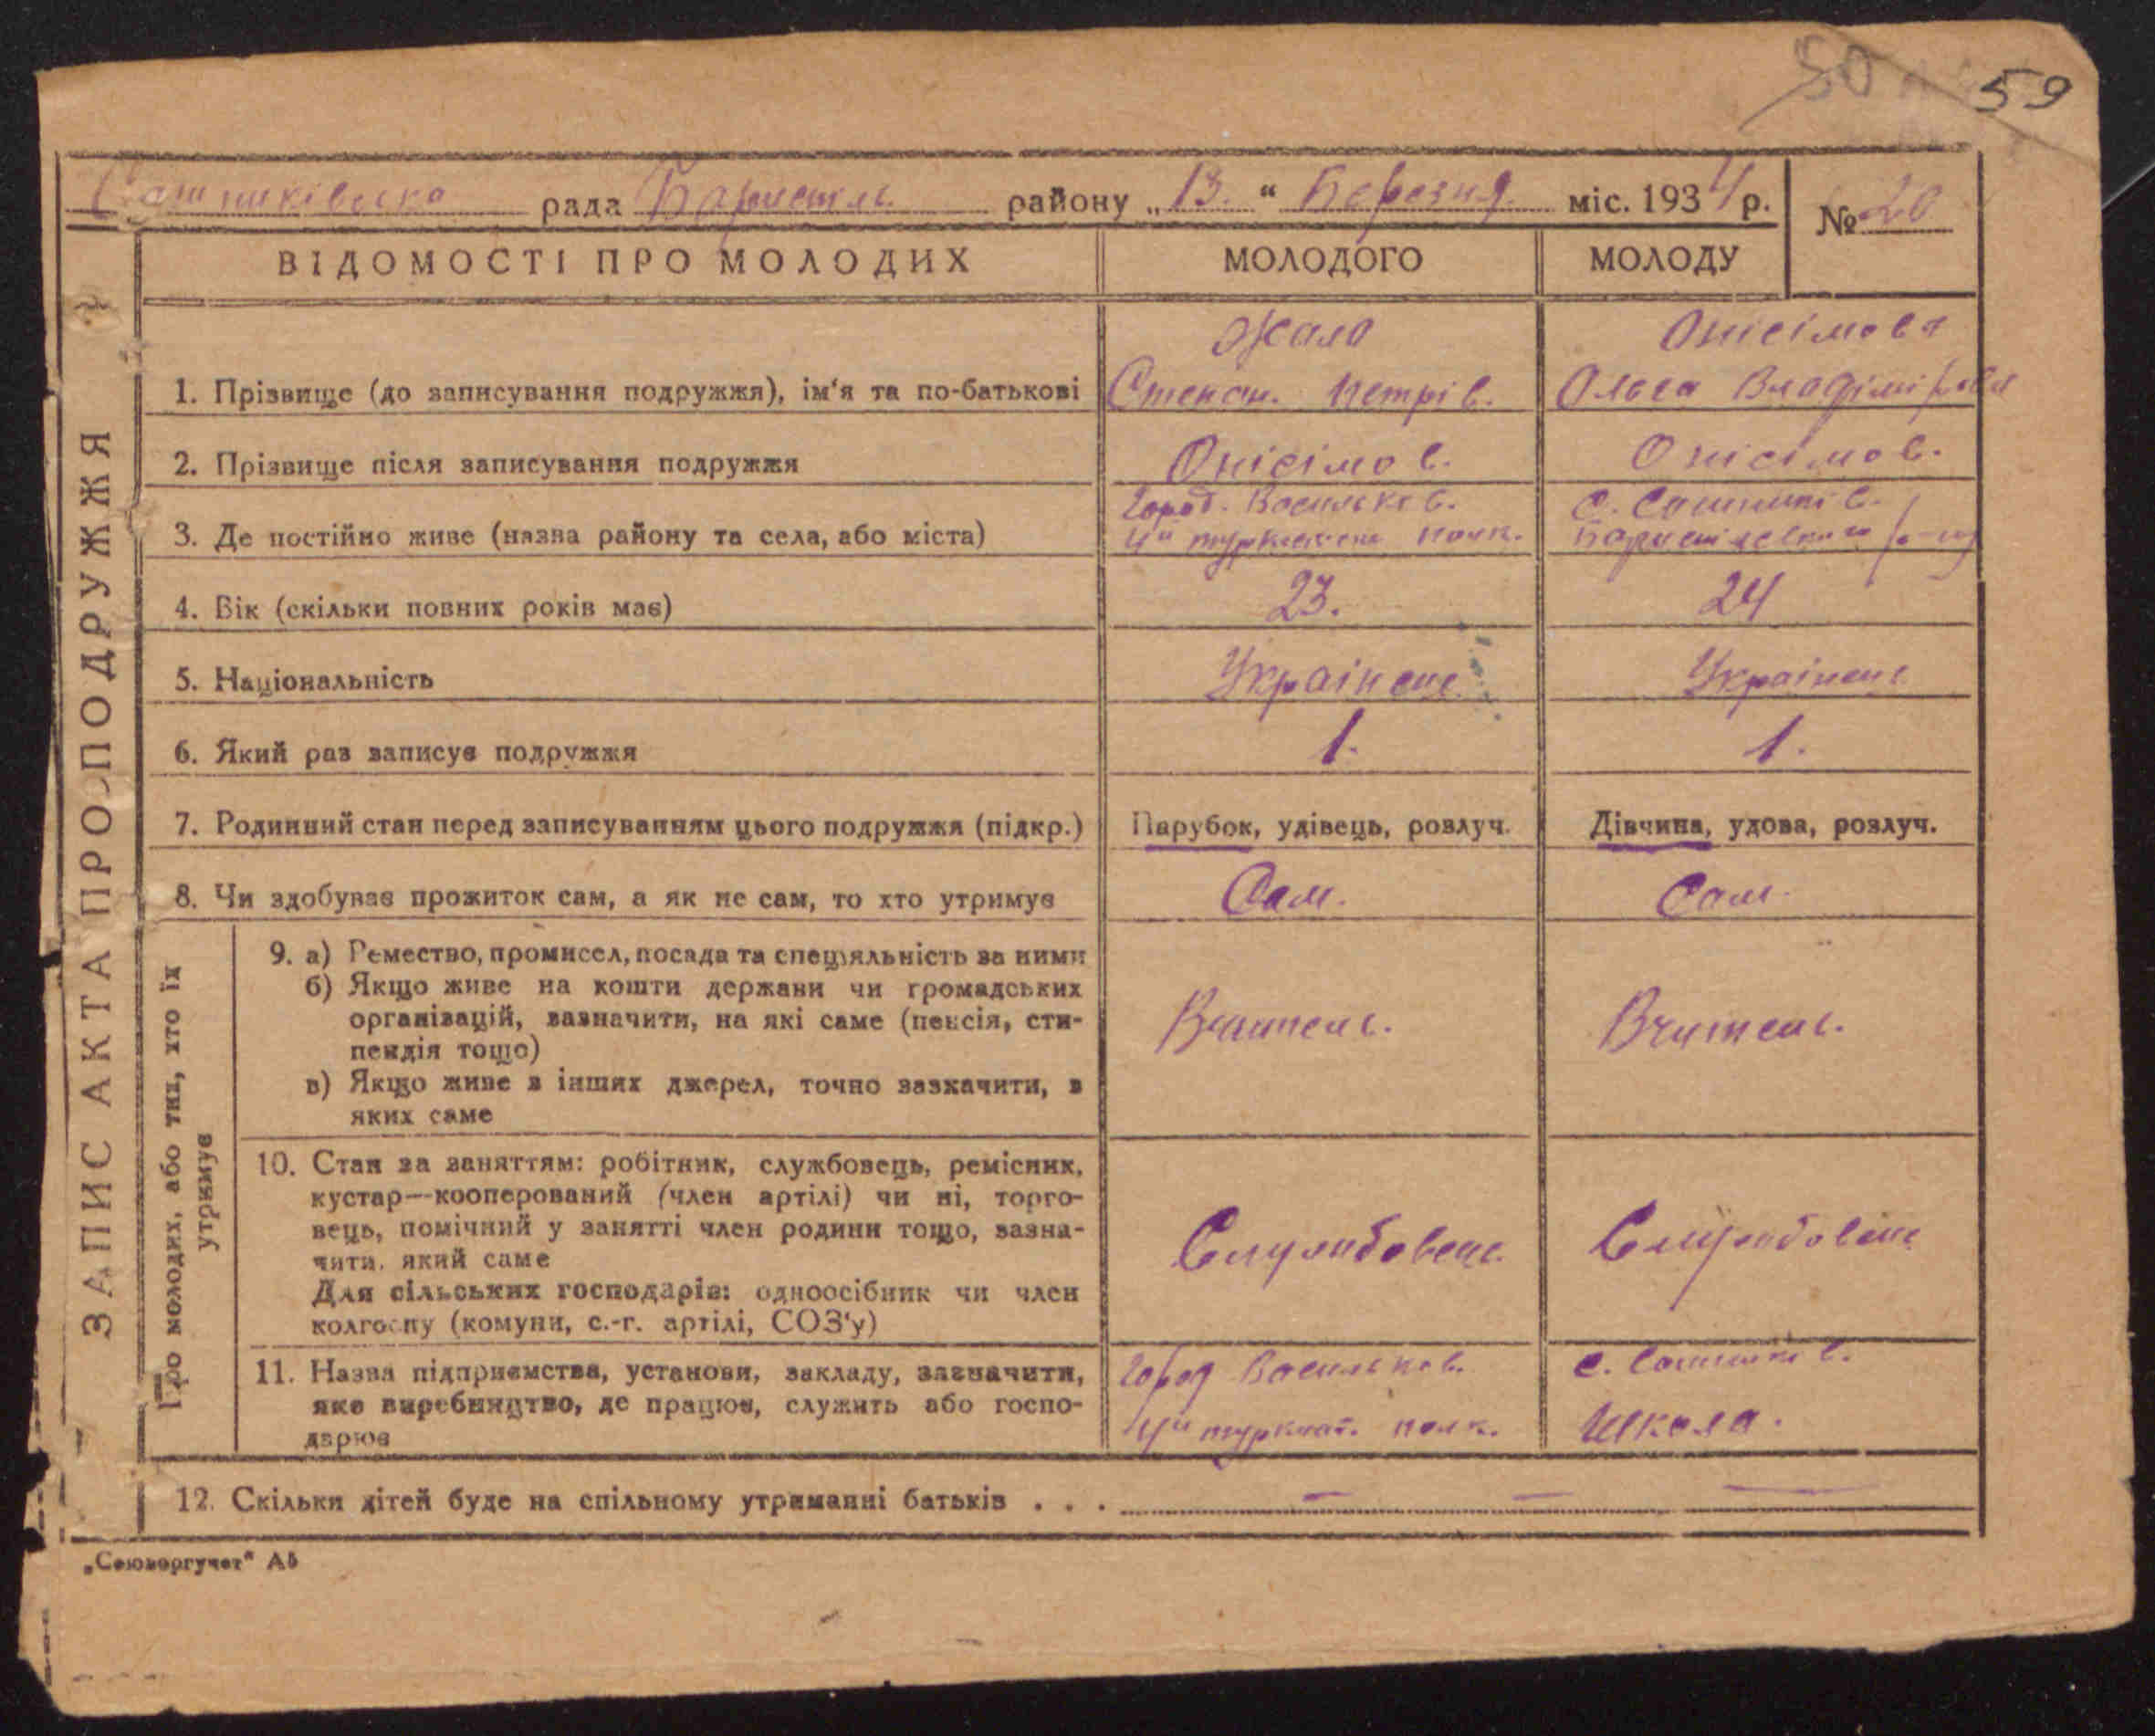 50 59
рада Баришпіль. району „13.“ Березня. міс. 1934 р. № 20
ВІДОМОСТІ ПРО МОЛОДИХ МОЛОДОГО МОЛОДУ
Жало Онісімова
1. Прізвище (до записування подружжя), ім'я та по-батькові Степан. Петрів. Ольга Владімірова
2. Прізвище після записування подружжя Онісімов. Онісімов.
3. Де постійно живе (назва району та села, або міста) город. Васильків. 4й полк. с. Сошників.
4. Вік (скільки повних років має) 23. 24
5. Національність Українець Українець
6. Який раз записує подружжя 1. 1.
7. Родинний стан перед записуванням цього подружжя (підкр.) Парубок, удівець, розлуч. Дівчина, удова, розлуч.
8. Чи здобуває прожиток сам, а як не сам, то хто утримує Сам. Сам.
ЗАПИС АКТА ПРО ПОДРУЖЖЯ
Про молодих, або тих, хто їх
утримує
9. а) Ремество, промисел, посада та спеціяльність за ними
б) Якщо живе на кошти держави чи громадських
організацій, зазначити, на які саме (пенсія, сти-
пендія тощо)
в) Якщо живе з інших джерел, точно зазначити, з
яких саме
Вчитель. Вчитель.
10. Стан за заняттям: робітник, службовець, ремісник,
кустар—кооперований (член артілі) чи ні, торго-
вець, помічний у занятті член родини тощо, зазна-
чити, який саме
Для сільських господарів: одноосібник чи член
колгоспу (комуни, с.-г. артілі, СОЗ'у)
Службовець Службовець
11. Назва підприємства, установи, закладу, зазначити,
яке виробництво, де працює, служить або госпо-
дарює
город Васильков. с. Сошників.
4й туркмат. полк. Школа.
12. Скільки дітей буде на спільному утриманні батьків . . . — — —
„Союзоргучет" А5